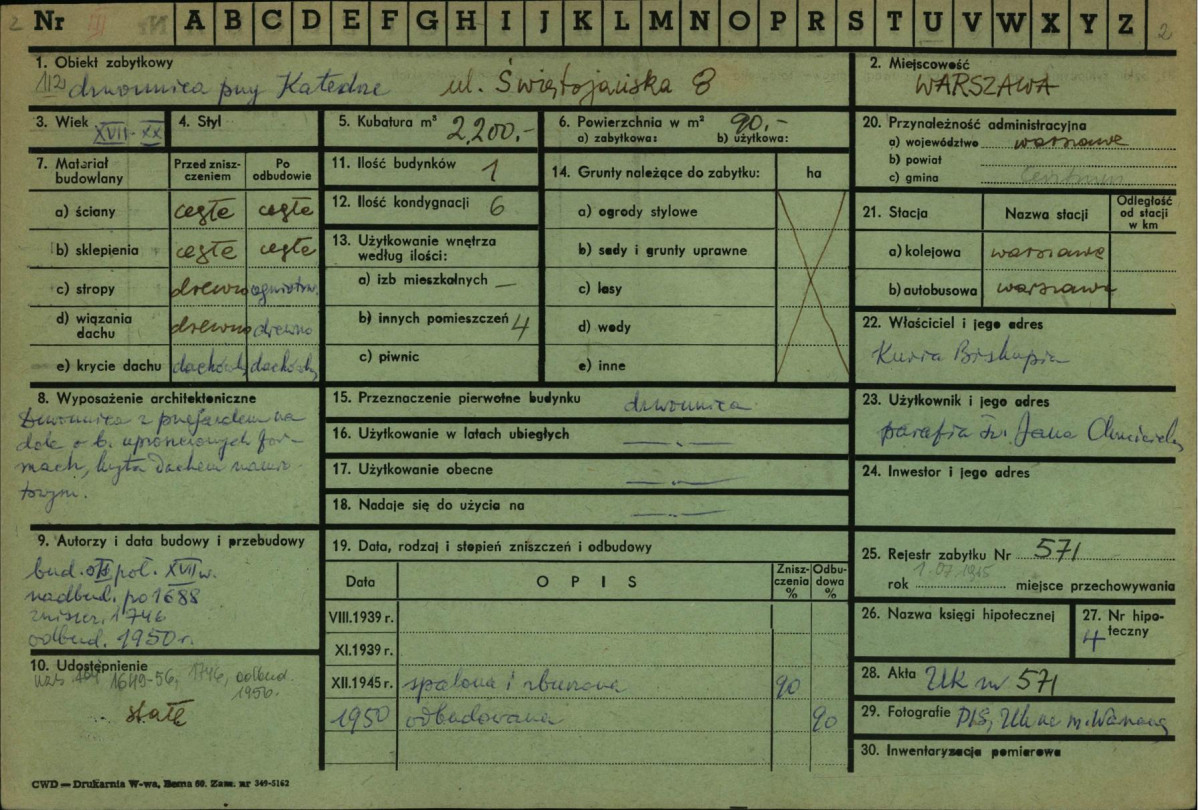 2 Nr III A B C D E F G H I J K L M N O P R S T U V W X Y Z 2
1. Obiekt zabytkowy
1121 dzwonnica przy Katedrze ul. Świętojańska 8
2. Miejscowość
WARSZAWA
3. Wiek XVII-XX
4. Styl
5. Kubatura m³ 2,200,-
6. Powierzchnia w m² 90,-
a) zabytkowa: b) użytkowa:
20. Przynależność administracyjna
a) województwo warszawa
b) powiat
c) gmina
7. Materiał budowlany
Przed znisz-
czeniem
Po
odbudowie
a) ściany cegła cegła
b) sklepienia cegła cegła
c) stropy drewno ogniotrw.
d) wiązania
dachu drewno drewno
e) krycie dachu dachówka dachówka
11. Ilość budynków 1
12. Ilość kondygnacji 6
13. Użytkowanie wnętrza
według ilości:
a) izb mieszkalnych —
b) innych pomieszczeń 4
c) piwnic
14. Grunty należące do zabytku: ha
a) ogrody stylowe
b) sady i grunty uprawne
c) lasy
d) wody
e) inne
21. Stacja Nazwa stacji
Odległość
od stacji
w km
a) kolejowa warszawa
b) autobusowa warszawa
22. Właściciel i jego adres
Kuria Biskupia
8. Wyposażenie architektoniczne
Dzwonnica z przejazdem na
dole o b. uproszczonych for-
mach, kryta dachem namio-
towym.
15. Przeznaczenie pierwotne budynku dzwonnica
16. Użytkowanie w latach ubiegłych —.—
17. Użytkowanie obecne —.—
18. Nadaje się do użycia na —.—
23. Użytkownik i jego adres
parafia św. Jana Chrzciciela
24. Inwestor i jego adres
9. Autorzy i data budowy i przebudowy
bud. poł. XVII w.
nadbud. po 1688
zniszcz. 1746
odbud. 1950 r.
10. Udostępnienie
1649-56, 1746, odbud.
1950.
stałe
19. Data, rodzaj i stopień zniszczeń i odbudowy
Data OPIS
Znisz-
czenia
%
Odbu-
dowa
%
VIII.1939 r.
XI.1939 r.
XII.1945 r. spalona i zburzona 90
1950 odbudowana 90
25. Rejestr zabytku Nr 571
1.07.1965
rok miejsce przechowywania
26. Nazwa księgi hipotecznej
27. Nr hipo-
teczny
4
28. Akta UK nr 571
29. Fotografie PIS, UK na m. Warszawę
30. Inwentaryzacja pomiarowa
CWD — Drukarnia W-wa, Bema 60. Zam. nr 349-5162